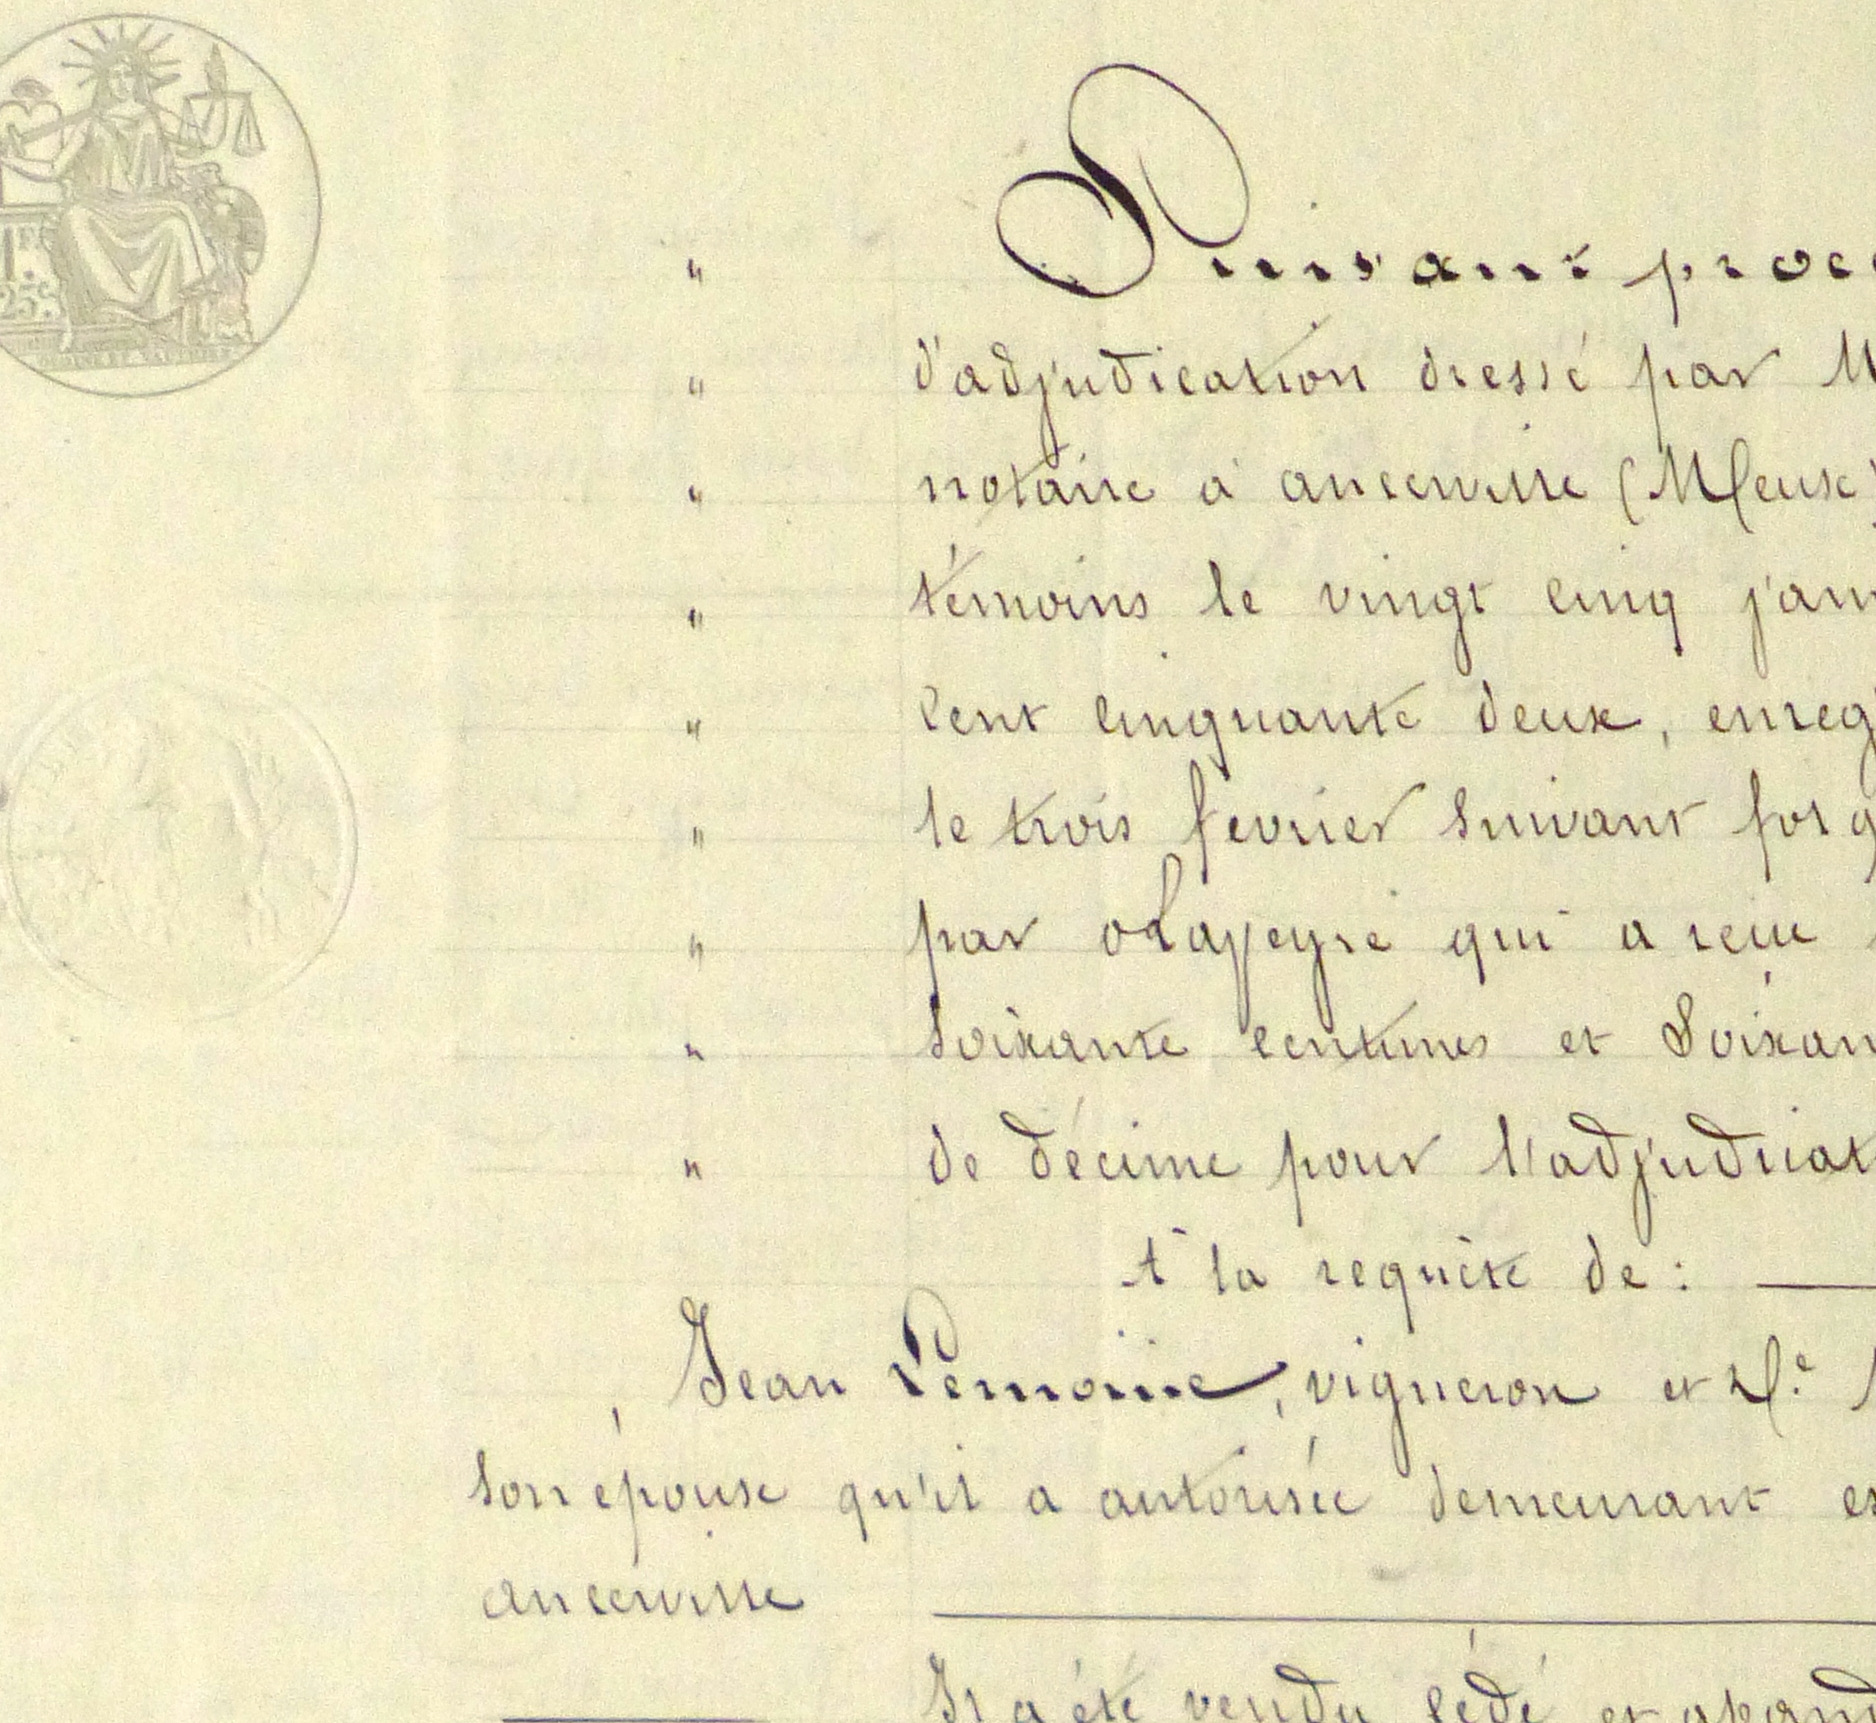 " Suivant proc
" d'adjudication dressé par M
" notaire à ancerville (Meuse)
" témoins le vingt cinq janv
" Cent cinquante deux, enreg
" le trois fevrier Suivant fol
" par Lapeyre qui a reçu
" Soixante centimes et Soixan
" de décime pour l'adjudicat
A la requête de :
Jean Lemoine, vigneron et De
Son épouse qu'il a autorisée demeurant
ancerville
Il a été vendu cédé et aband